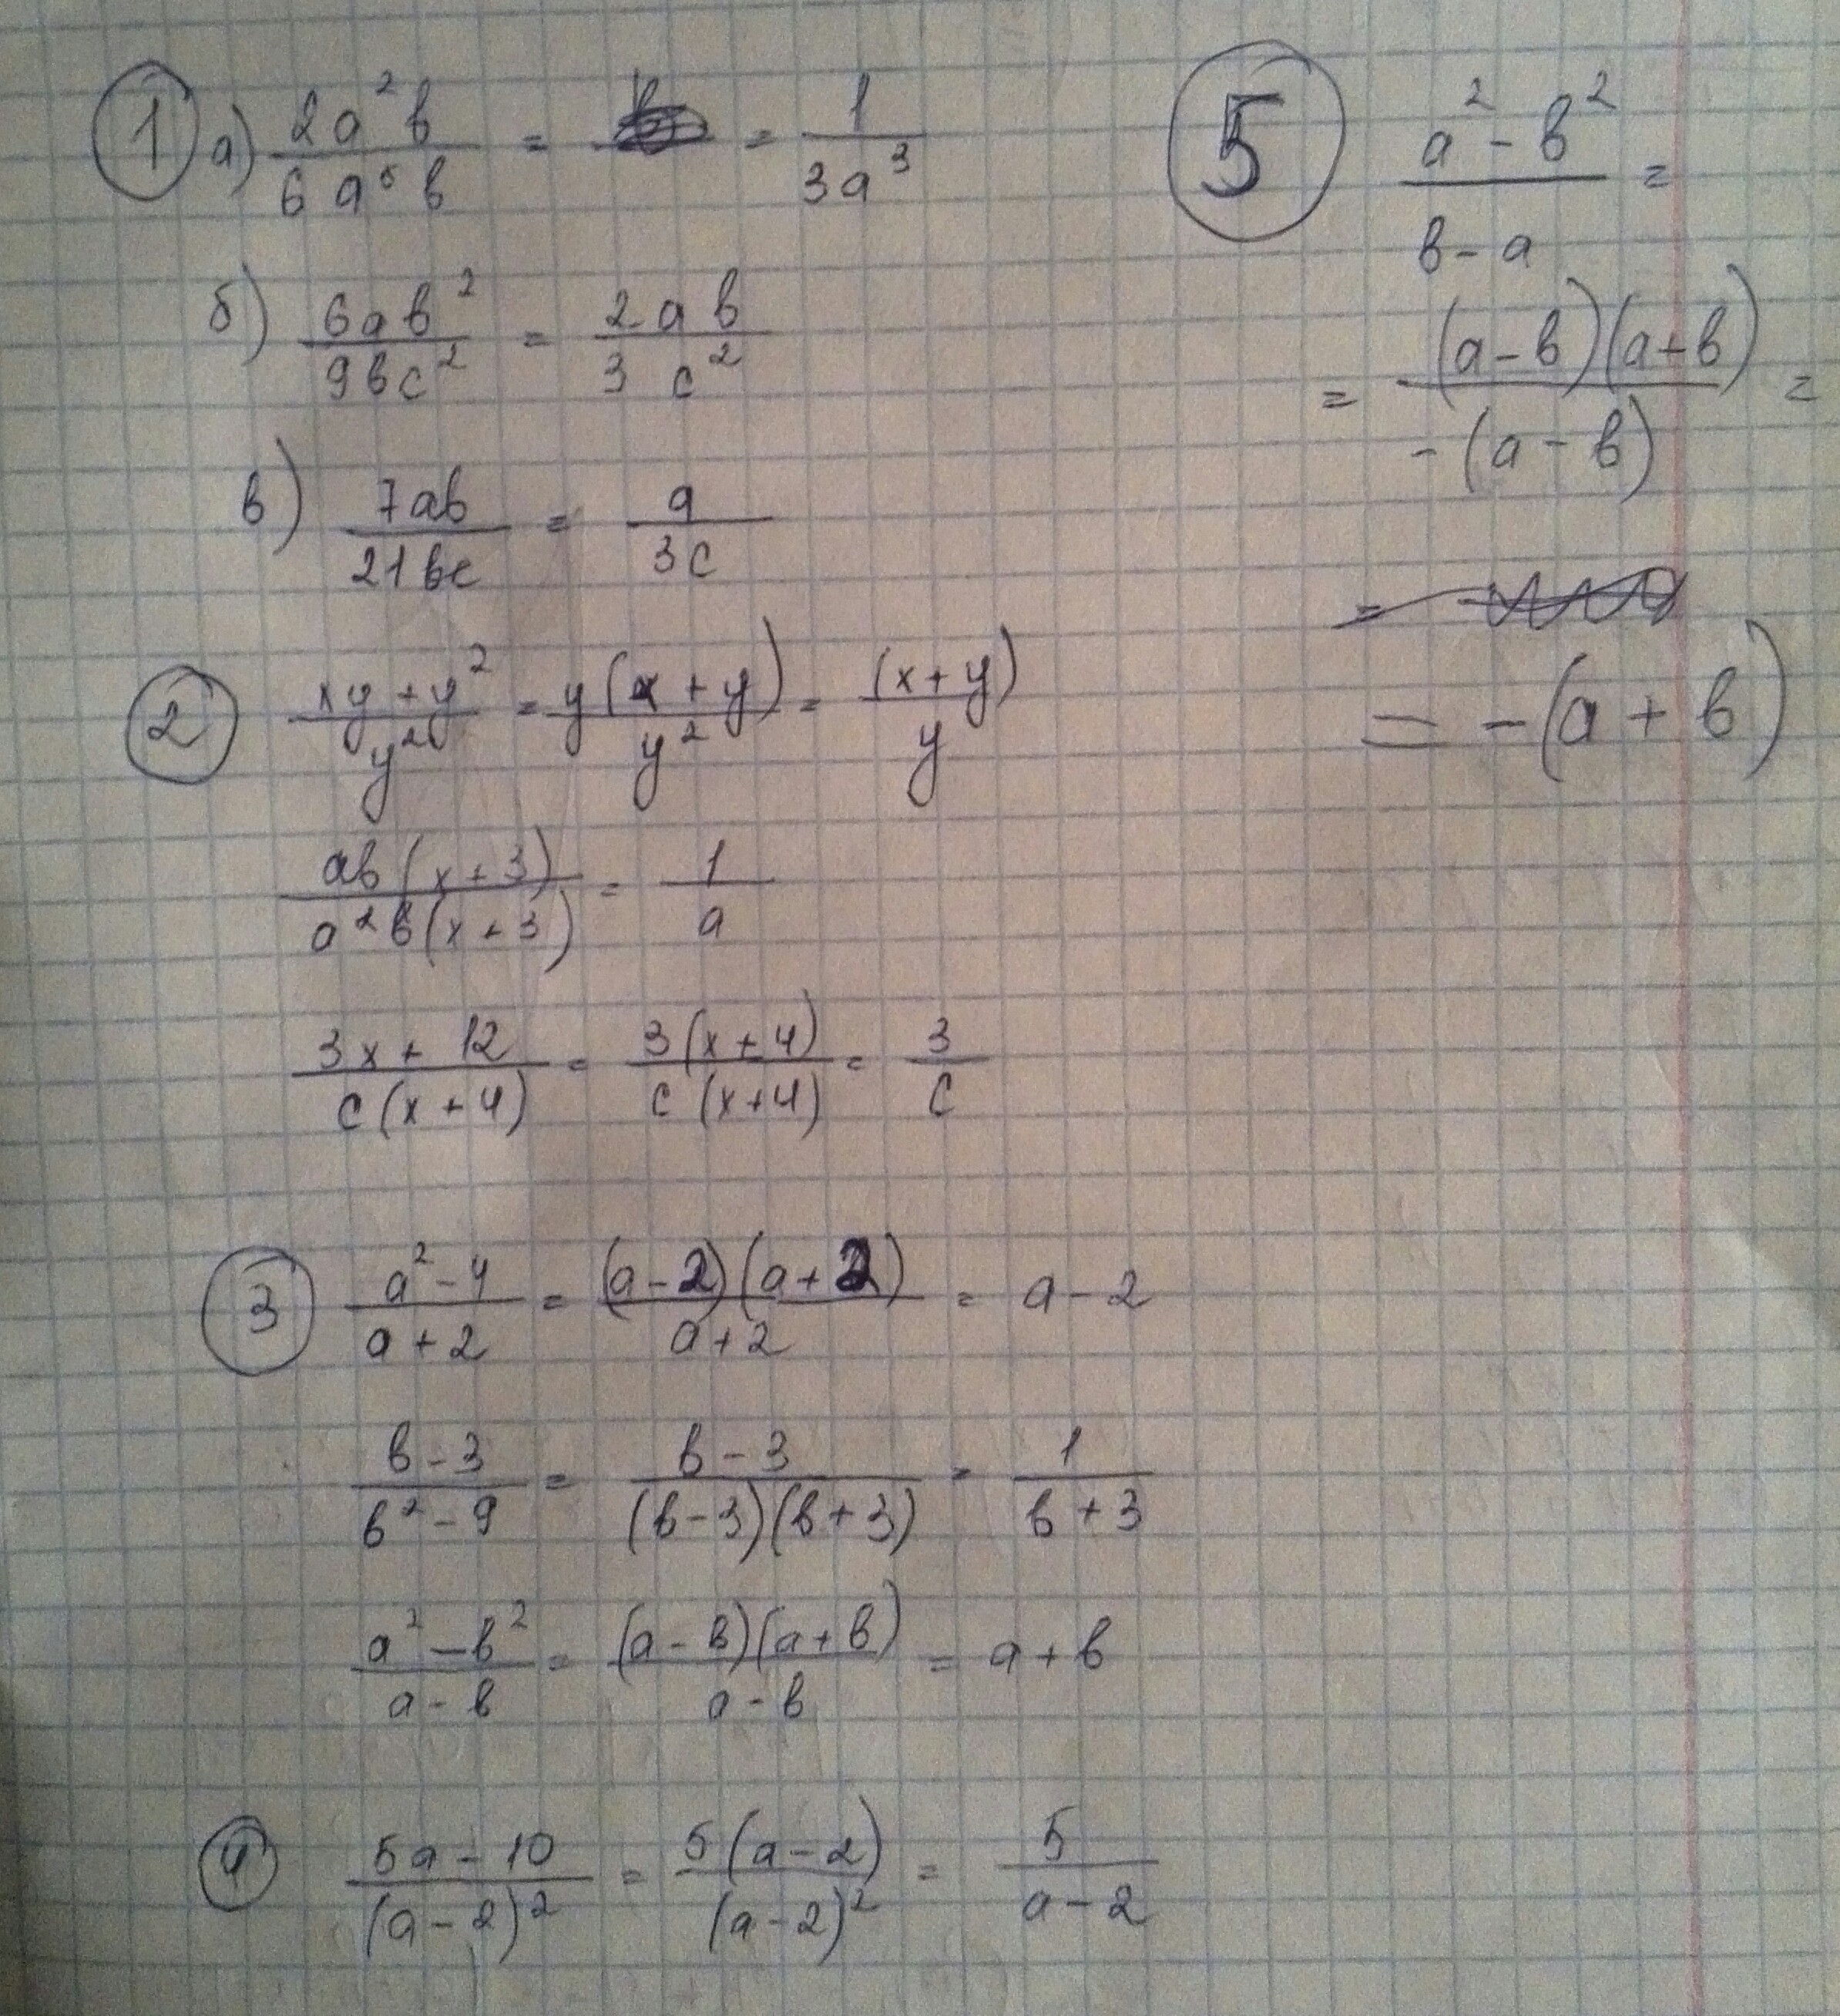 ① а) 2a²b / 6a⁵b = = 1 / 3a³
б) 6ab² / 9bc² = 2ab / 3c²
в) 7ab / 21bc = a / 3c
② xy + y² / y² = y(x + y) / y² = (x + y) / y
ab(x + 3) / a²b(x + 3) = 1 / a
3x + 12 / c(x + 4) = 3(x + 4) / c(x + 4) = 3 / c
③ a² - 4 / a + 2 = (a - 2)(a + 2) / a + 2 = a - 2
b - 3 / b² - 9 = b - 3 / (b - 3)(b + 3) = 1 / b + 3
a² - b² / a - b = (a - b)(a + b) / a - b = a + b
④ 5a - 10 / (a - 2)² = 5(a - 2) / (a - 2)² = 5 / a - 2
⑤ a² - b² / b - a =
= (a - b)(a + b) / -(a - b) =
= -(a + b)